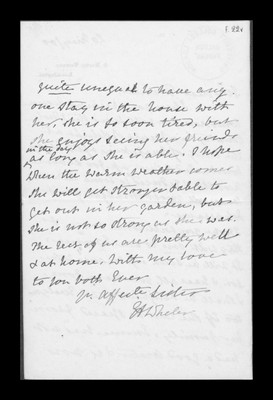 f. 22v
quite unequal to have any
one stay in the house with
her, she is so soon tired, but
she enjoys seeing her friends
in the day
as long as she is able. I hope
when the warm weather comes
she will get stronger & able to
get out in her garden, but
she is not so strong as she was.
The rest of us are pretty well
& at home. With my love
to you both Ever
yr. affecte. Sister
E A Wheler